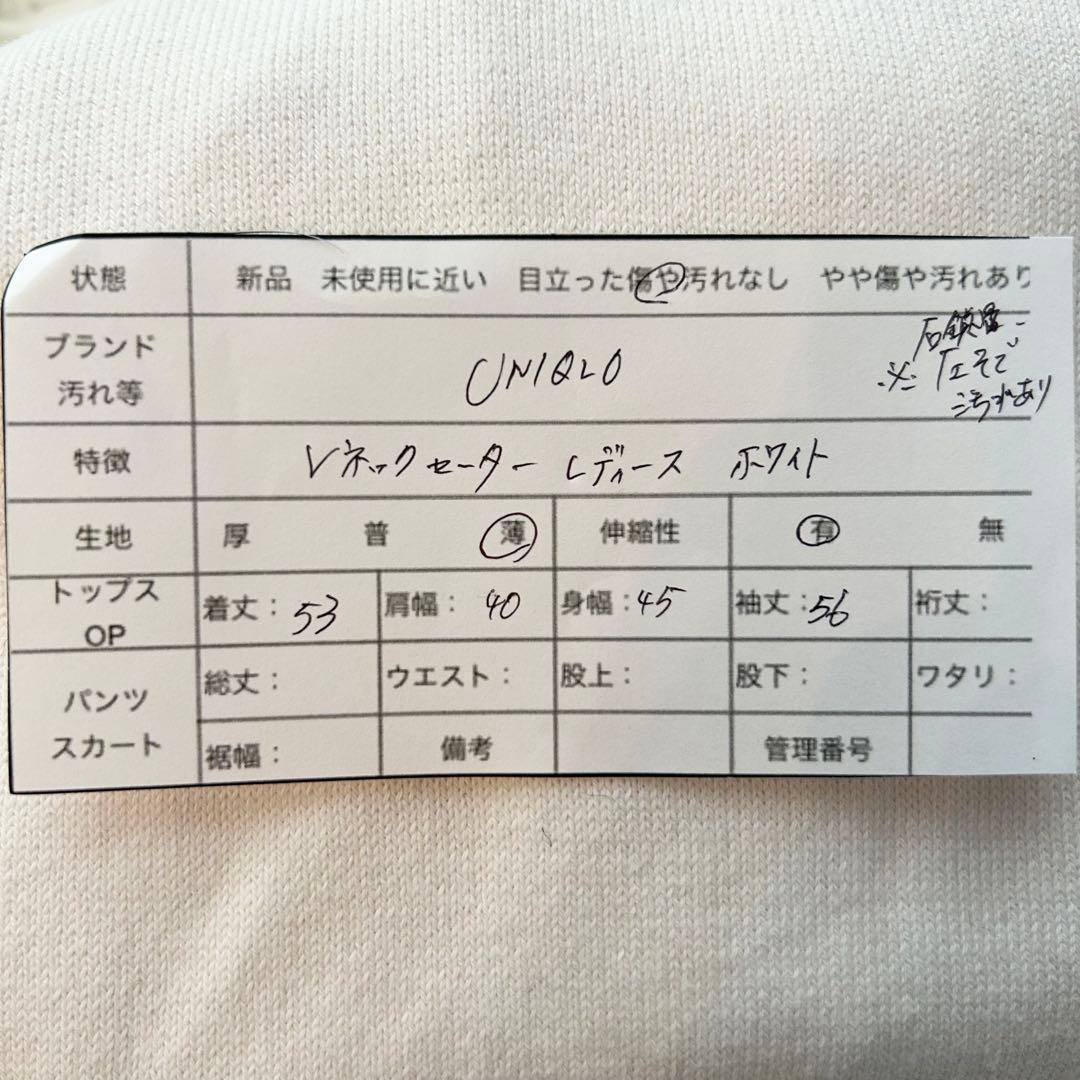 状態 新品 未使用に近い 目立った傷や汚れなし やや傷や汚れあり
ブランド
汚れ等 UNIQLO
右鎖骨
※ 左そで
汚れあり
特徴 Vネックセーター レディース ホワイト
生地 厚 普 薄 伸縮性 有 無
トップス
OP 着丈：53 肩幅：40 身幅：45 袖丈：56 裄丈：
パンツ
スカート 総丈： ウエスト： 股上： 股下： ワタリ：
裾幅： 備考 管理番号